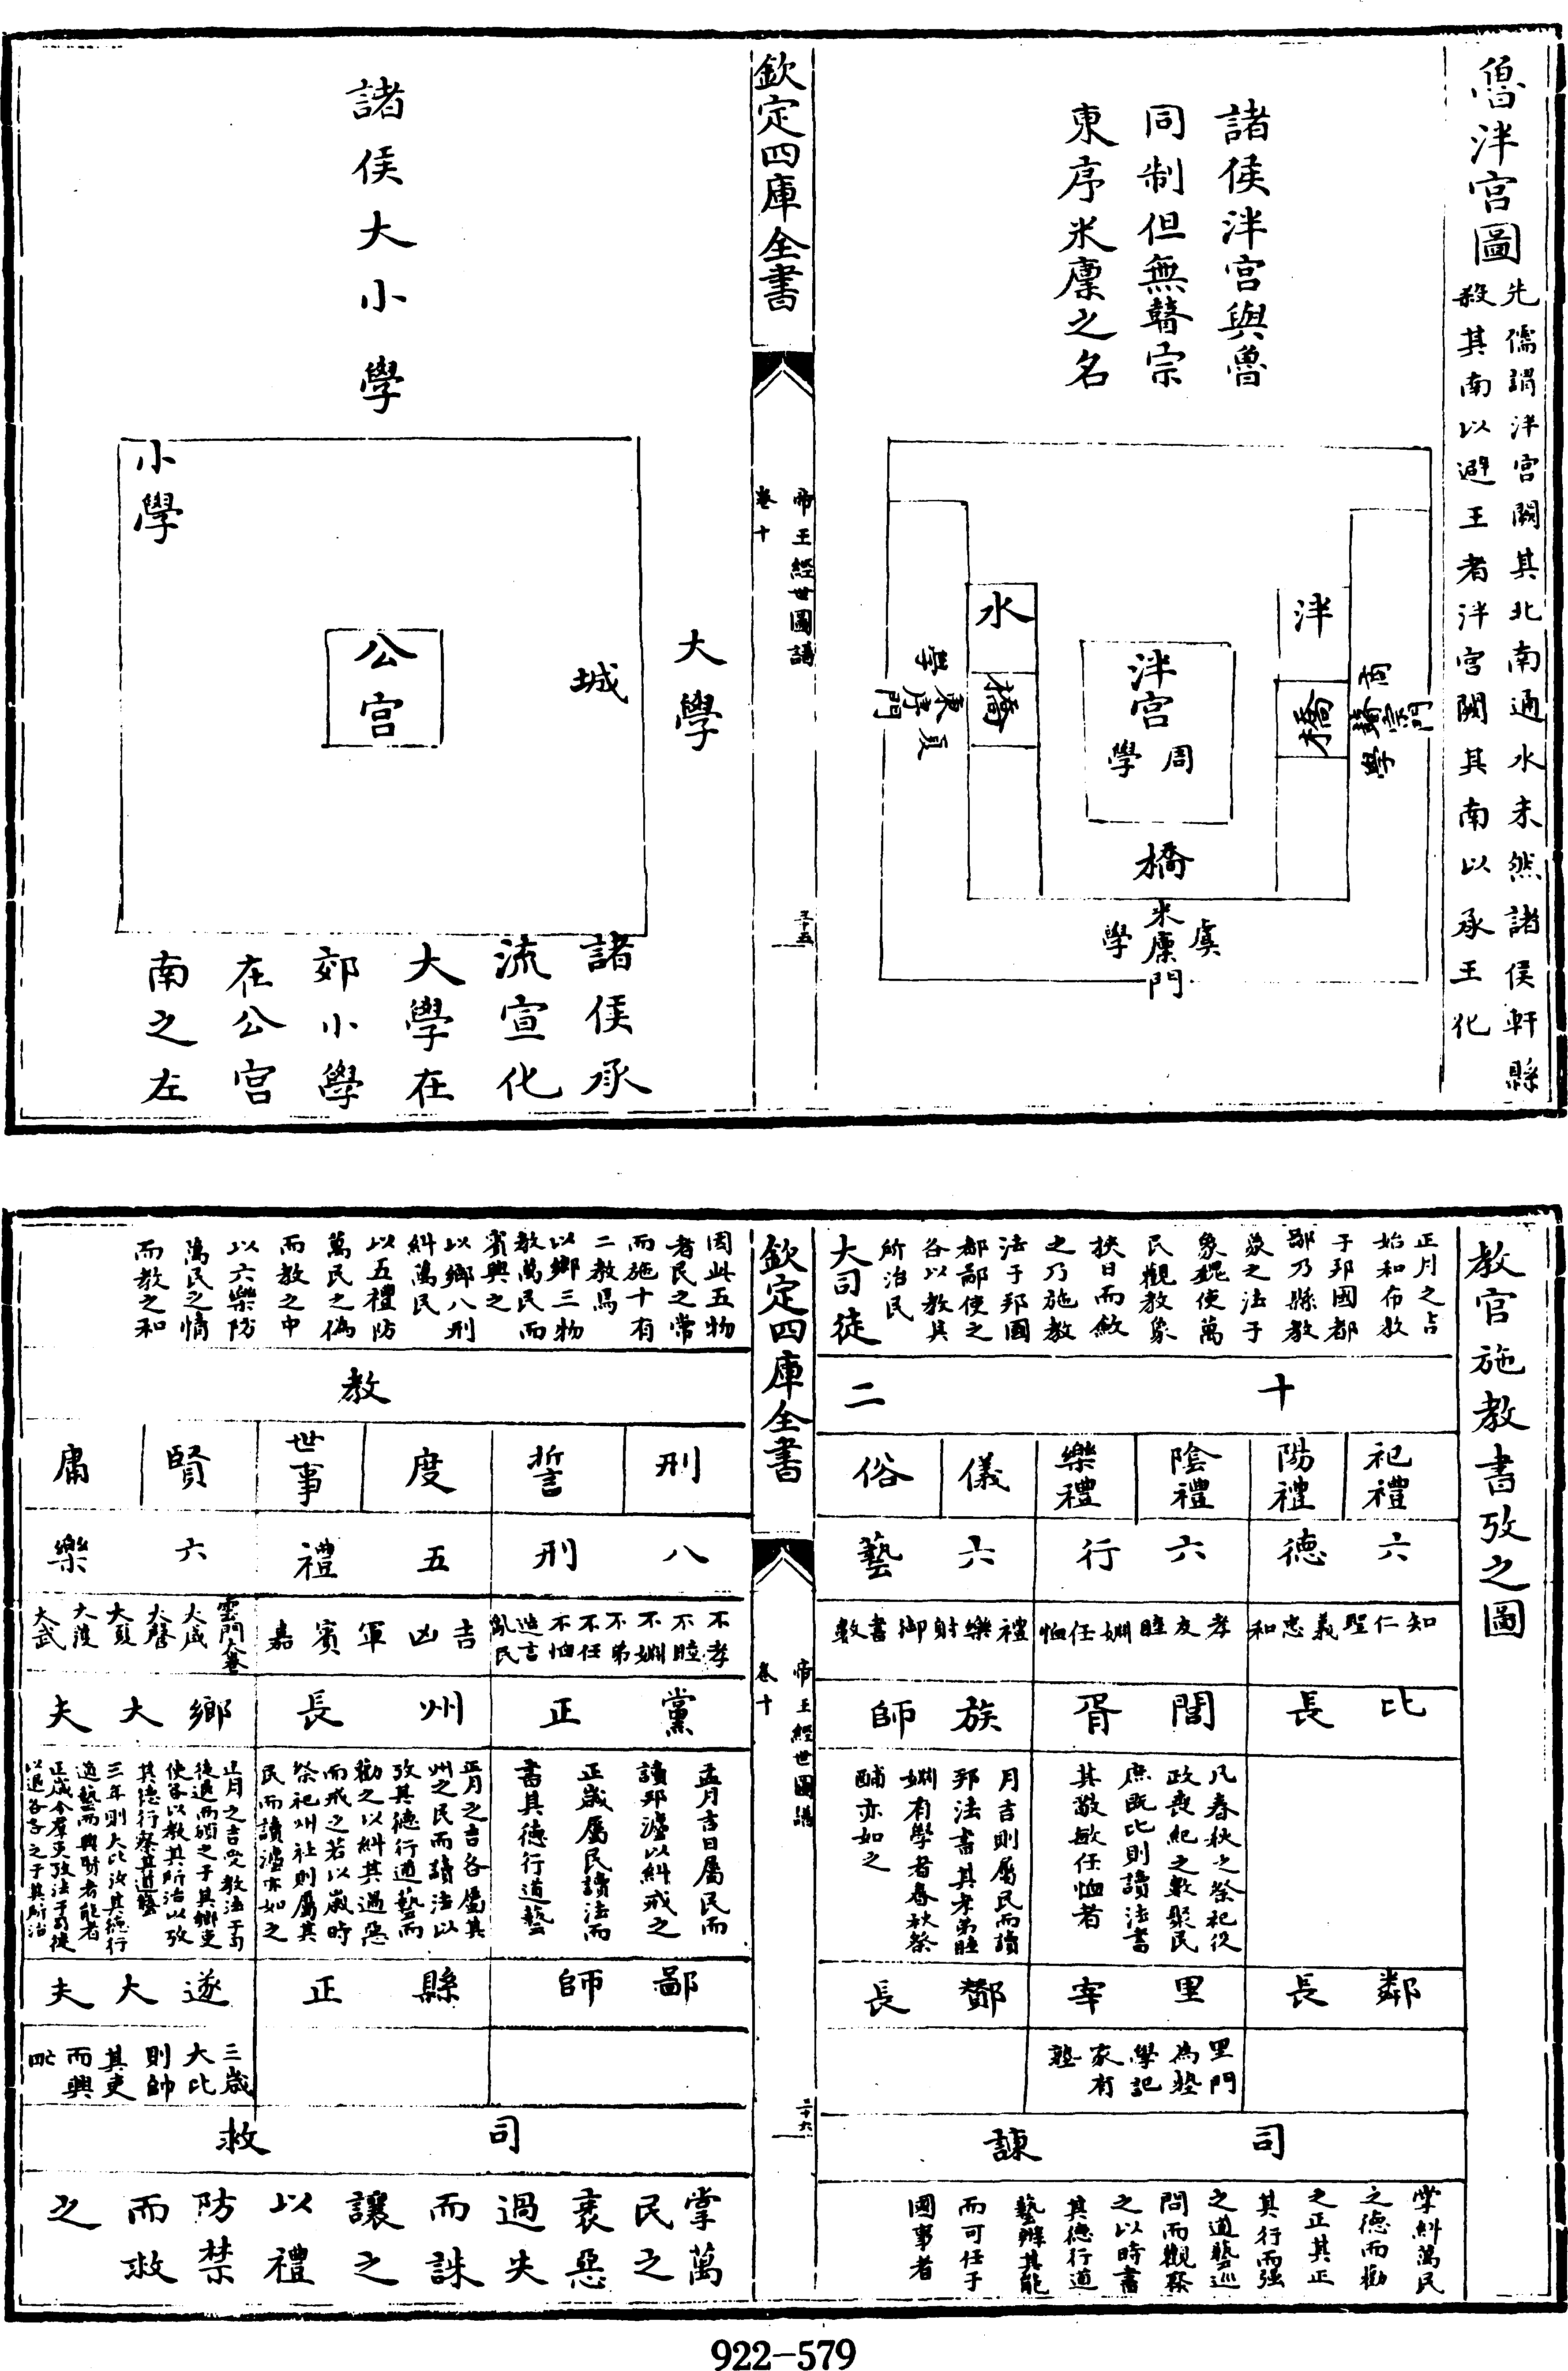 魯泮宮圖
先儒謂泮宮闕其北南通水未然諸侯軒縣
殺其南以避王者泮宮闕其南以承王化
諸侯泮宮與魯
同制但無瞽宗
東序米廩之名
泮
橋
商
瞽宗門
學
泮宮
周
學
橋
虞
米廩門
學
水
橋
夏
東序門
學
欽定四庫全書
帝王經世圖譜
卷十
三十五
諸侯大小學
大學
城
公宮
小學
諸侯承
流宣化
大學在
郊小學
在公宮
南之左
教官施教書攷之圖
正月之吉
始和布教
于邦國都
鄙乃縣教
象之法于
象魏使萬
民觀教象
挾日而斂
之乃施教
法于邦國
都鄙使之
各以教其
所治民
大司徒
十
二
祀禮
陽禮
陰禮
樂禮
儀
俗
六德
六行
六藝
知仁聖義忠和
孝友睦婣任恤
禮樂射御書數
比長
閭胥
族師
凡春秋之祭祀役
政喪紀之數聚民
庶既比則讀法書
其敬敏任恤者
月吉則屬民而讀
邦法書其孝弟睦
婣有學者春秋祭
酺亦如之
鄰長
里宰
酇長
里門
為塾
學記
家有
塾
司諫
掌糾萬民
之德而勸
之正其正
其行而強
之道藝巡
問而觀察
之以時書
其德行道
藝辨其能
而可任于
國事者
欽定四庫全書
帝王經世圖譜
卷十
三十六
因此五物
者民之常
而施十有
二教焉
以鄉三物
教萬民而
賓興之
以鄉八刑
糾萬民
以五禮防
萬民之偽
而教之中
以六樂防
萬民之情
而教之和
教
刑
誓
度
世事
賢
庸
八刑
五禮
六樂
不孝
不睦
不婣
不弟
不任
不恤
造言
亂民
吉凶軍賓嘉
雲門大卷
大咸
大磬
大夏
大濩
大武
黨正
州長
鄉大夫
孟月吉日屬民而
讀邦灋以糾戒之
正歲屬民讀法而
書其德行道藝
正月之吉各屬其
州之民而讀法以
攷其德行道藝而
勸之以糾其過惡
而戒之若以歲時
祭祀州社則屬其
民而讀灋亦如之
正月之吉受教法于司
徒退而頒之于其鄉吏
使各以教其所治以攷
其德行察其道藝
三年則大比攷其德行
道藝而興賢者能者
正歲令羣吏攷法于司徒
以退各憲之于其所治
鄙師
縣正
遂大夫
三歲
大比
則帥
其吏
而興
甿
司救
掌萬
民之
衺惡
過失
而誅
讓之
以禮
防禁
而救
之
922-579